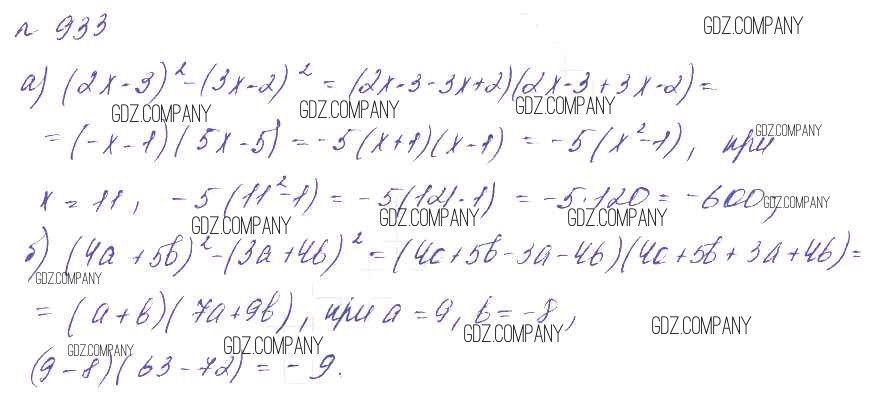 № 933 GDZ.COMPANY
а) (2x-3)² - (3x-2)² = (2x-3-3x+2)(2x-3+3x-2) =
GDZ.COMPANY GDZ.COMPANY GDZ.COMPANY
= (-x-1)(5x-5) = -5(x+1)(x-1) = -5(x²-1), при GDZ.COMPANY
x = 11, -5(11²-1) = -5(121-1) = -5·120 = -600; GDZ.COMPANY
GDZ.COMPANY GDZ.COMPANY GDZ.COMPANY
б) (4a+5b)² - (3a+4b)² = (4a+5b-3a-4b)(4a+5b+3a+4b) =
GDZ.COMPANY
= (a+b)(7a+9b), при a = 9, b = -8,
GDZ.COMPANY GDZ.COMPANY
GDZ.COMPANY GDZ.COMPANY
(9-8)(63-72) = -9.